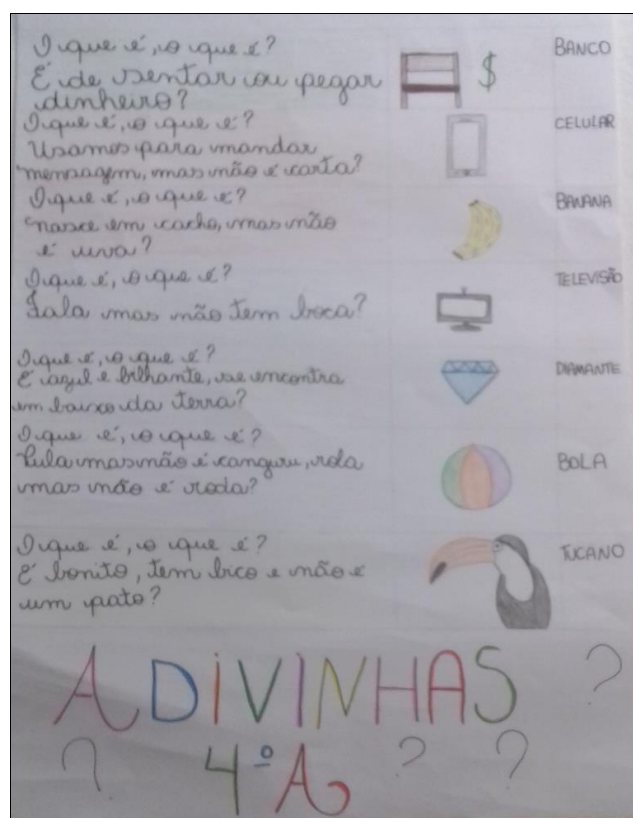 O que é, o que é?
É de sentar ou pegar
dinheiro?
$
BANCO
O que é, o que é?
Usamos para mandar
mensagem, mas não é carta?
CELULAR
O que é, o que é?
nasce em cacho, mas não
é uva?
BANANA
O que é, o que é?
Fala mas não tem boca?
TELEVISÃO
O que é, o que é?
É azul e brilhante, se encontra
em baixo da terra?
DIAMANTE
O que é, o que é?
Pula mas não é canguru, rola
mas não é roda?
BOLA
O que é, o que é?
É bonito, tem bico e não é
um pato?
TUCANO
ADIVINHAS ?
? 4º A ? ?